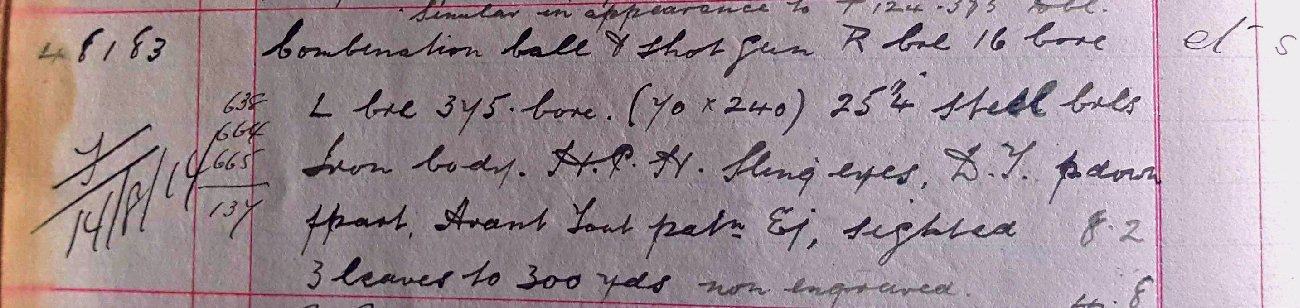 Similar in appearance to 124.375
48183 Combination ball & shot gun R brl 16 bore
638 L brl 375. bore. (70 x 240) 25¾" steel brls
664
665 Iron body. H.P. H. Sling eyes, D.T. p down
14/8/14
137 fpart, Avant Tout patn Ej, sighted 8.2
3 leaves to 300 yds non engraved. 8